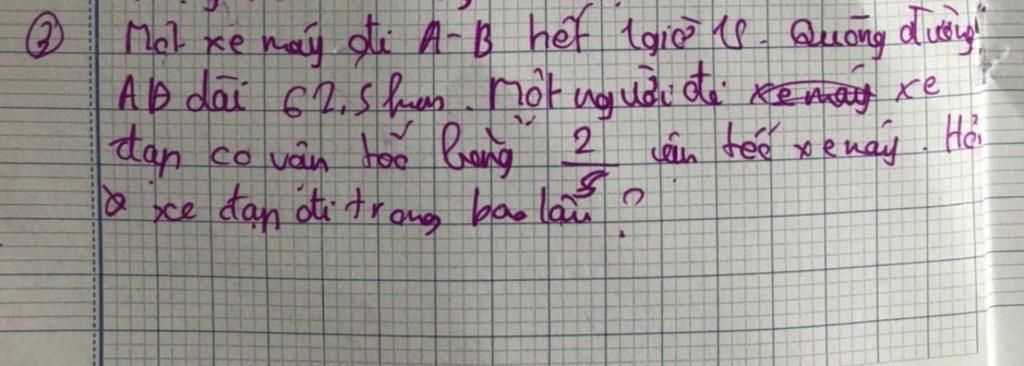 ② Một xe máy đi A-B hết 1giờ 15. Quãng đường
AB dài 62,5km. Một người đi xe máy xe
đạp có vân tốc bằng 2/5 vận tốc xe máy. Hỏi
xe đạp đi trong bao lâu?